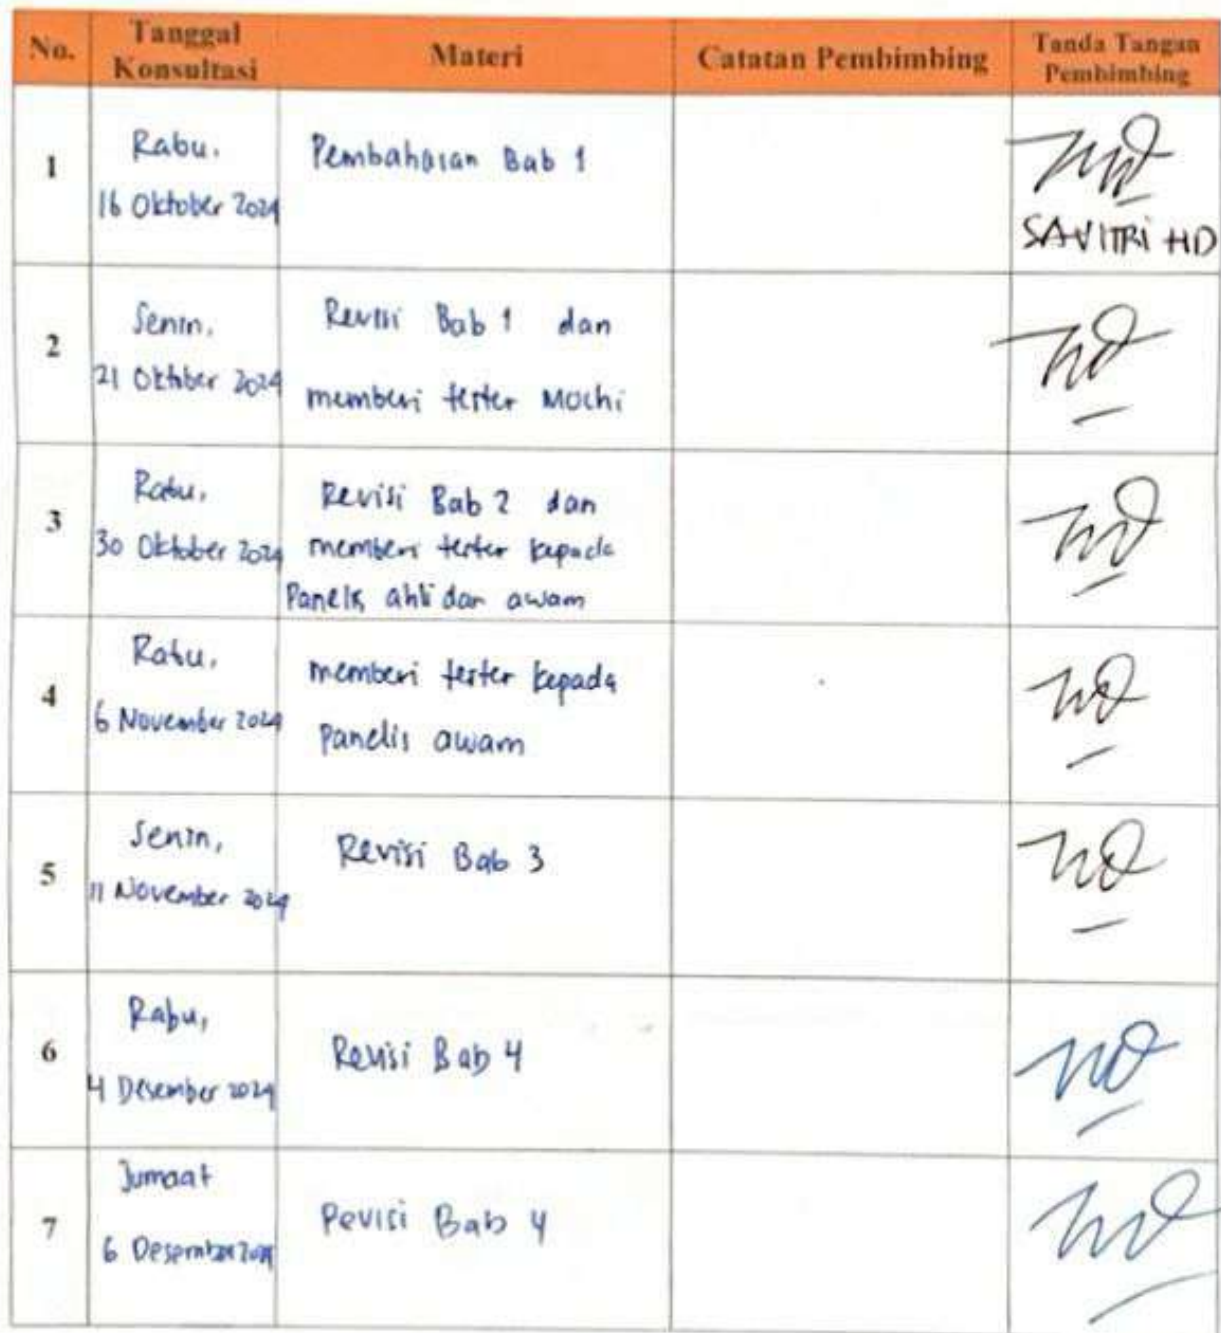 No. Tanggal Konsultasi Materi Catatan Pembimbing Tanda Tangan Pembimbing
1
Rabu,
16 Oktober 2024
Pembahasan Bab 1
SAVITRI HD
2
Senin,
21 Oktober 2024
Revisi Bab 1 dan
memberi tester Mochi
3
Rabu,
30 Oktober 2024
Revisi Bab 2 dan
memberi tester kepada
Panelis ahli dan awam
4
Rabu,
6 November 2024
memberi tester kepada
Panelis awam
5
Senin,
11 November 2024
Revisi Bab 3
6
Rabu,
4 Desember 2024
Revisi Bab 4
7
Jumaat
6 Desember 2024
Revisi Bab 4